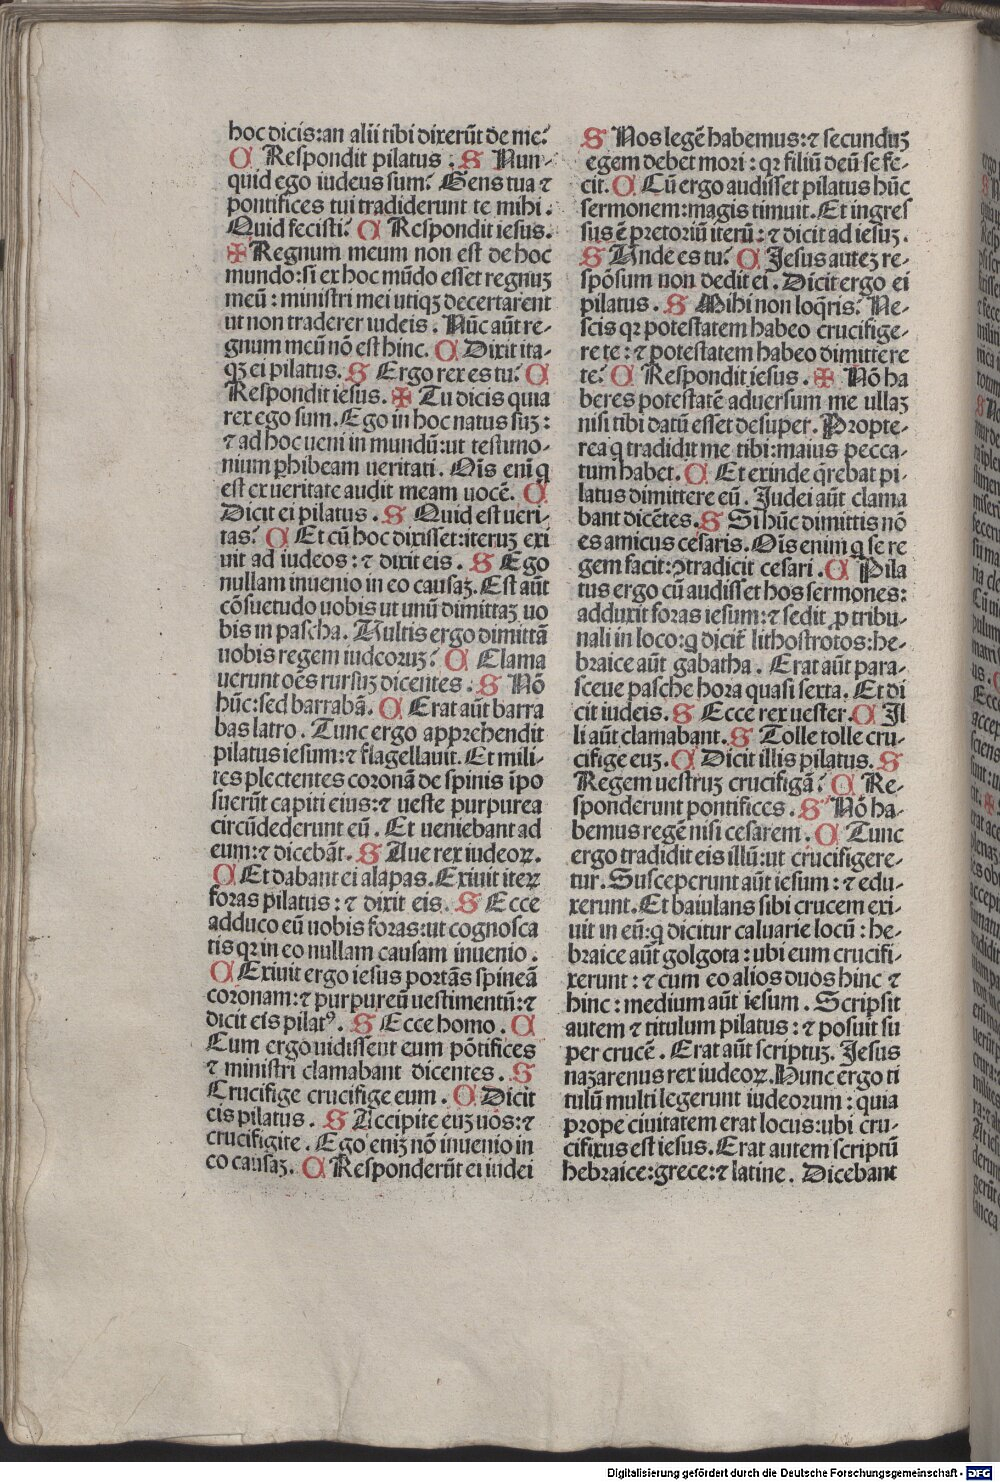 hoc dicis:an alii tibi dixerūt de me?
C Respondit pilatus : S Nun-
quid ego iudeus sum? Gens tua ⁊
pontifices tui tradiderunt te mihi .
Quid fecisti? C Respondit iesus.
✠ Regnum meum non est de hoc
mundo:si ex hoc mūdo esset regnuꝫ
meū : ministri mei utiqꝫ decertarent
ut non traderer iudeis . Nūc aūt re-
gnum meū nō est hinc. C Dixit ita-
qꝫ ei pilatus. S Ergo rex es tu? C
Respondit iesus. ✠ Tu dicis quia
rex ego sum. Ego in hoc natus suꝫ :
⁊ ad hoc ueni in mundū:ut testimo-
nium ꝑhibeam ueritati . Oīs enī q̄
est ex ueritate audit meam uocē. C
Dicit ei pilatus . S Quid est ueri-
tas? C Et cū hoc dixisset:iteruꝫ exi
uit ad iudeos : ⁊ dixit eis . S Ego
nullam inuenio in eo causaꝫ. Est aūt
cōsuetudo uobis ut unū dimittaꝫ uo
bis in pascha. Uultis ergo dimittā
uobis regem iudeoruꝫ? C Clama
uerunt oēs rursuꝫ dicentes . S Nō
hūc:sed barrabā. C Erat aūt barra
bas latro . Tunc ergo apprehendit
pilatus iesum:⁊ flagellauit. Et mili-
tes plectentes coronā de spinis īpo
suerūt capiti eius:⁊ ueste purpurea
circūdederunt eū . Et ueniebant ad
eum:⁊ dicebāt. S Aue rex iudeoꝝ.
C Et dabant ei alapas. Exiuit iteꝝ
foras pilatus : ⁊ dixit eis. S Ecce
adduco eū uobis foras:ut cognosca
tis qꝛ in eo nullam causam inuenio .
C Exiuit ergo iesus portās spineā
coronam:⁊ purpureū uestimentū:⁊
dicit eis pilatꝰ. S Ecce homo. C
Cum ergo uidissent eum pōtifices
⁊ ministri clamabant dicentes . S
Crucifige crucifige eum . C Dicit
eis pilatus . S Accipite euꝫ uos:⁊
crucifigite . Ego eniꝫ nō inuenio in
eo causaꝫ. C Responderūt ei iudei
S Nos legē habemus:⁊ secunduꝫ
egem debet mori : qꝛ filiū deū se fe-
cit. C Cū ergo audisset pilatus hūc
sermonem:magis timuit. Et ingres
sus ē pretoriū iterū : ⁊ dicit ad iesuꝫ .
S Unde es tu? C Jesus auteꝫ re-
spōsum non dedit ei . Dicit ergo ei
pilatus . S Mihi non loq̄ris? Ne-
scis qꝛ potestatem habeo crucifige-
re te : ⁊ potestatem habeo dimittere
te? C Respondit iesus . ✠ Nō ha
beres potestatē aduersum me ullaꝫ
nisi tibi datū esset desuper. Propte-
rea q̄ tradidit me tibi:maius pecca-
tum habet. C Et exinde q̄rebat pi-
latus dimittere eū . Judei aūt clama
bant dicētes. S Si hūc dimittis nō
es amicus cesaris. Oīs enim q̄ se re
gem facit:ꝯtradicit cesari . C Pila
tus ergo cū audisset hos sermones:
adduxit foras iesum:⁊ sedit ꝓ tribu-
nali in loco:q̄ dicit̄ lithostrotos:he-
braice aūt gabatha . Erat aūt para-
sceue pasche hora quasi sexta. Et di
cit iudeis. S Ecce rex uester. C Il
li aūt clamabant. S Tolle tolle cru-
cifige euꝫ. C Dicit illis pilatus. S
Regem uestruꝫ crucifigā? C Re-
sponderunt pontifices . S Nō ha-
bemus regē nisi cesarem . C Tunc
ergo tradidit eis illū:ut crucifigere-
tur. Susceperunt aūt iesum : ⁊ edu-
xerunt. Et baiulans sibi crucem exi-
uit in eū:q̄ dicitur caluarie locū : he-
braice aūt golgota : ubi eum crucifi-
xerunt : ⁊ cum eo alios duos hinc ⁊
hinc : medium aūt iesum . Scripsit
autem ⁊ titulum pilatus : ⁊ posuit su
per crucē . Erat aūt scriptuꝫ. Jesus
naꝫarenus rex iudeoꝝ. Hunc ergo ti
tulū multi legerunt iudeorum : quia
prope ciuitatem erat locus:ubi cru-
cifixus est iesus. Erat autem scriptū
hebraice:grece:⁊ latine . Dicebant
Digitalisierung gefördert durch die Deutsche Forschungsgemeinschaft - DFG